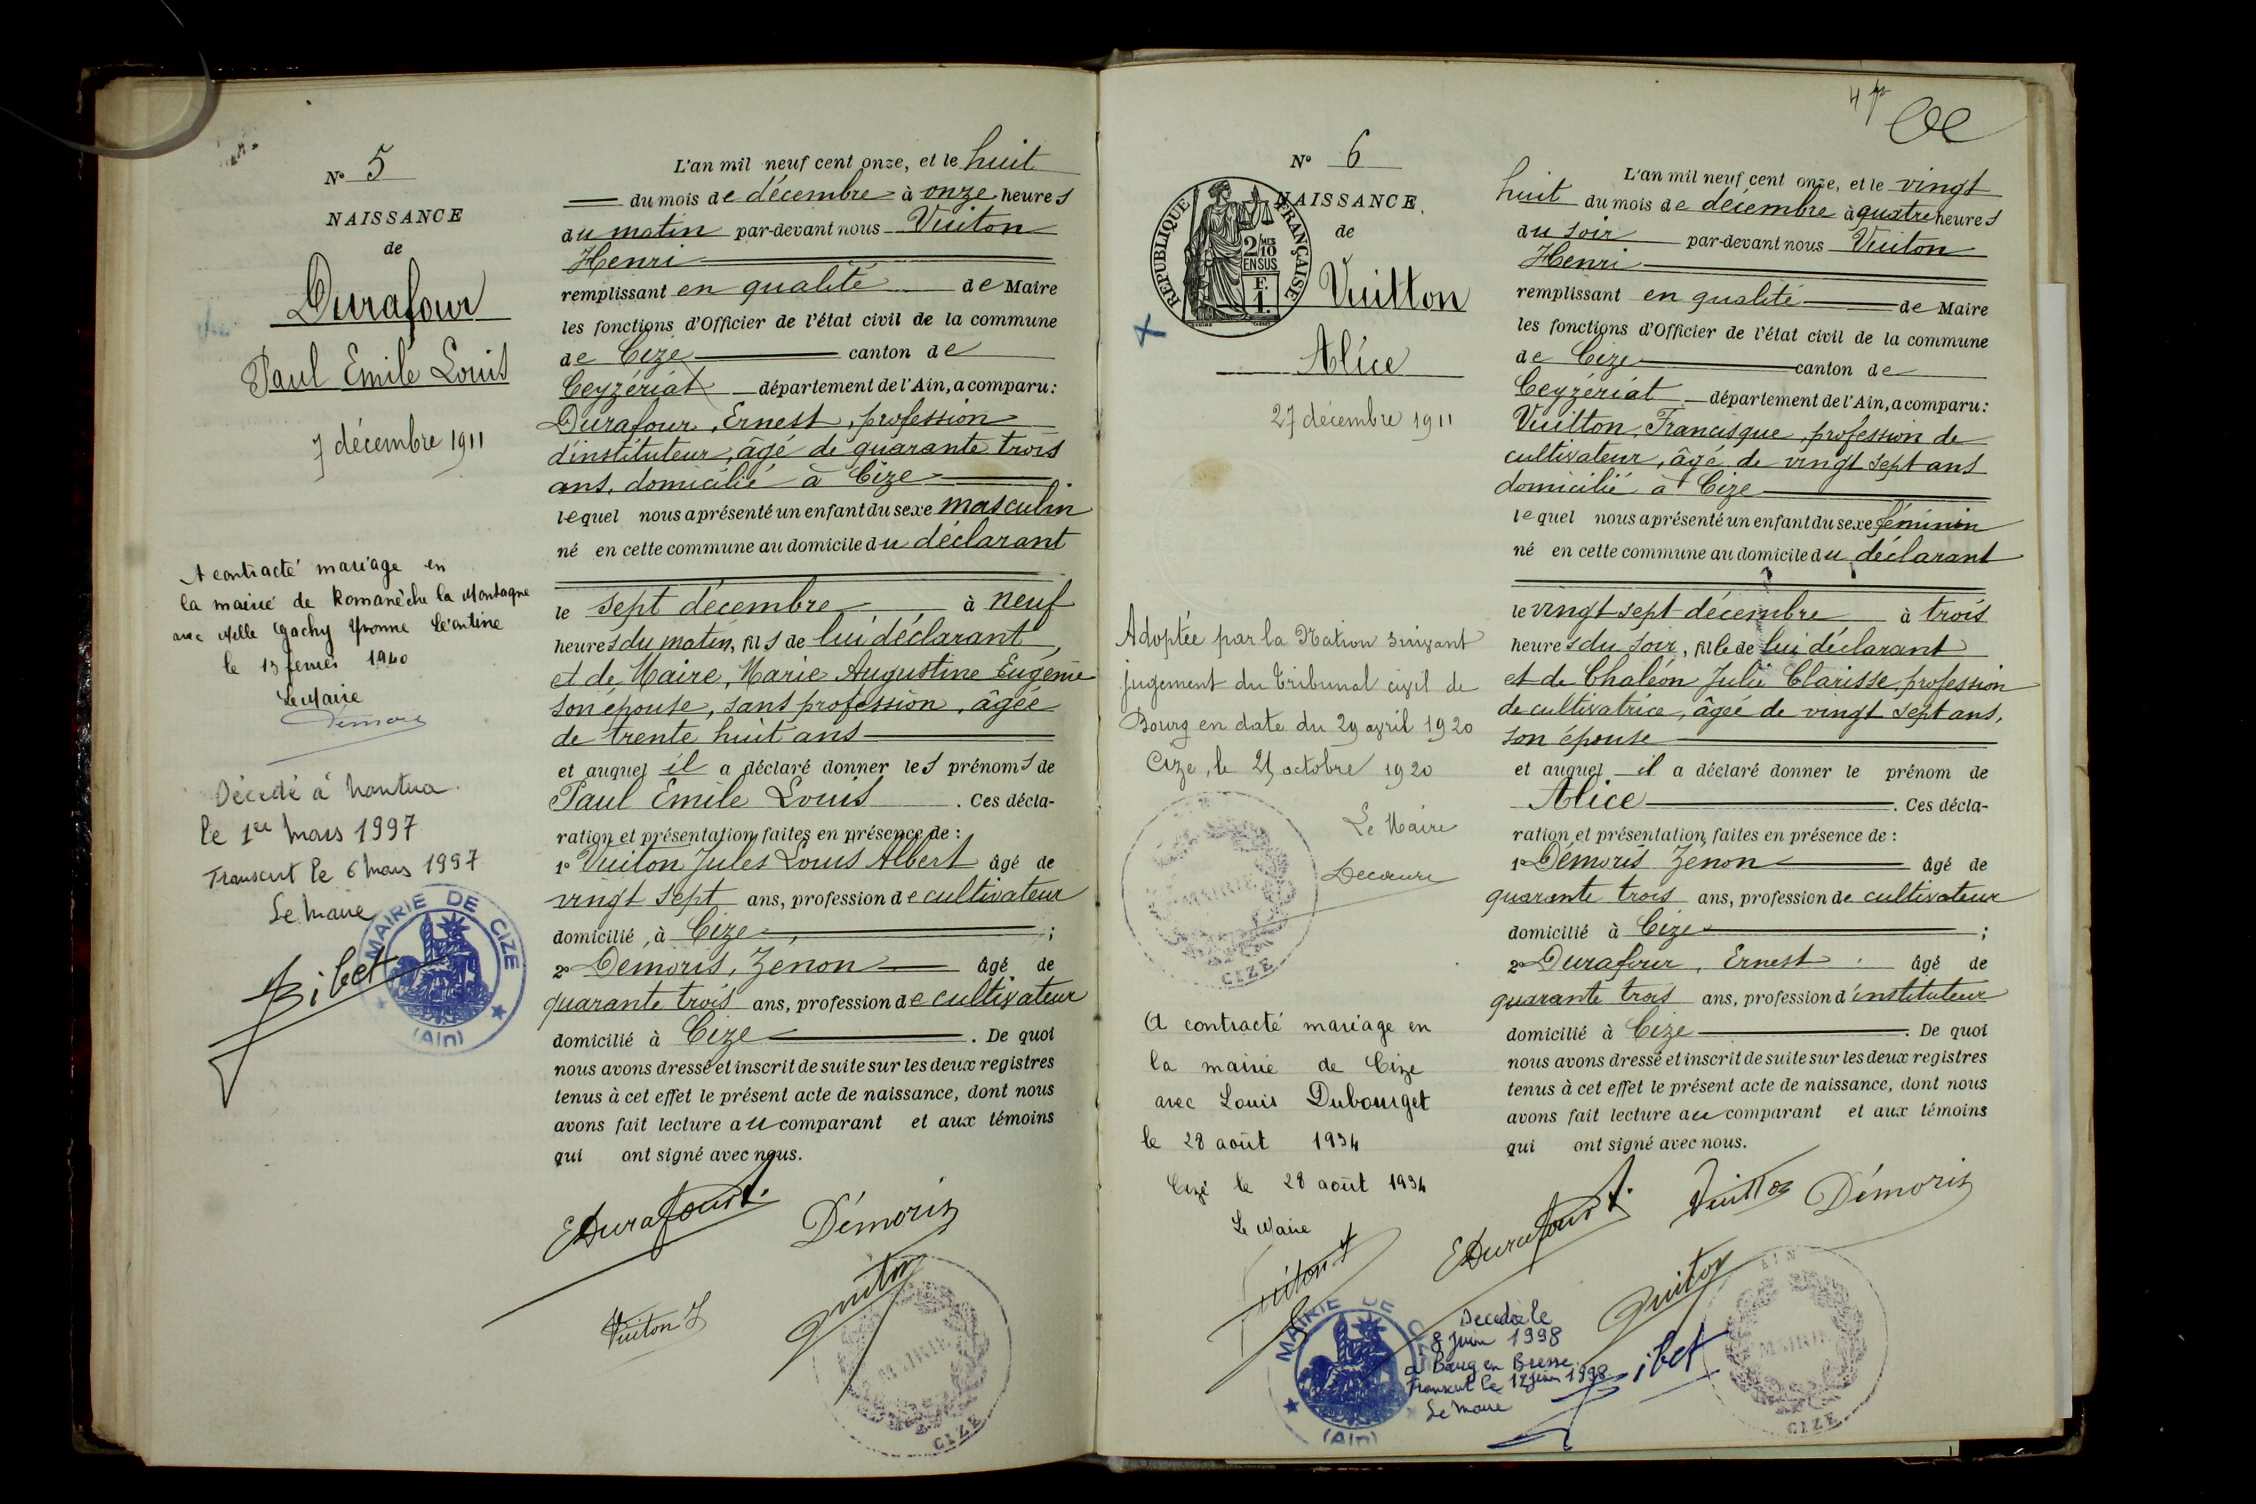 N° 5
NAISSANCE
de
Durafour
Paul Emile Louis
7 décembre 1911
A contracté mariage en
la mairie de Romanèche la Montagne
avec Melle Gachy Yvonne Léontine
le 13 février 1940
Le Maire
Démoris
Décédé à Nantua
le 1er Mars 1997
Transcrit le 6 Mars 1997
Le Maire
Bibet
MAIRIE DE CIZE
(Ain)
L'an mil neuf cent onze, et le huit
du mois de décembre à onze heures
du matin par-devant nous Vuiton
Henri
remplissant en qualité de Maire
les fonctions d'Officier de l'état civil de la commune
de Cize canton de
Ceyzériat département de l'Ain, a comparu:
Durafour, Ernest, profession
d'instituteur, âgé de quarante trois
ans, domicilié à Cize
lequel nous a présenté un enfant du sexe masculin
né en cette commune au domicile du déclarant
le sept décembre à neuf
heures du matin, fils de lui déclarant
et de Maire, Marie Augustine Eugénie
son épouse, sans profession, âgée
de trente huit ans
et auquel il a déclaré donner les prénoms de
Paul Emile Louis. Ces décla-
ration et présentation faites en présence de :
1° Vuiton Jules Louis Albert âgé de
vingt sept ans, profession de cultivateur
domicilié à Cize ;
2° Démoris, Zénon âgé de
quarante trois ans, profession de cultivateur
domicilié à Cize. De quoi
nous avons dressé et inscrit de suite sur les deux registres
tenus à cet effet le présent acte de naissance, dont nous
avons fait lecture au comparant et aux témoins
qui ont signé avec nous.
EDurafour
Démoris
Vuiton J
Vuiton
MAIRIE
CIZE
4
N° 6
NAISSANCE
de
RÉPUBLIQUE FRANÇAISE
2/10 MES EN SUS
F. 1.
Vuitton
Alice
27 décembre 1911
Adoptée par la Nation suivant
jugement du Tribunal civil de
Bourg en date du 29 avril 1920
Cize, le 21 octobre 1920
Le Maire
Decoeur
MAIRIE
CIZE
A contracté mariage en
la mairie de Cize
avec Louis Dubourget
le 28 août 1934
Cize le 28 août 1934
Le Maire
Vuiton
MAIRIE DE
(Ain)
L'an mil neuf cent onze, et le vingt
huit du mois de décembre à quatre heures
du soir par-devant nous Vuiton
Henri
remplissant en qualité de Maire
les fonctions d'Officier de l'état civil de la commune
de Cize canton de
Ceyzériat département de l'Ain, a comparu:
Vuitton, Francisque, profession de
cultivateur, âgé de vingt sept ans
domicilié à Cize
lequel nous a présenté un enfant du sexe féminin
né en cette commune au domicile du déclarant
le vingt sept décembre à trois
heures du soir, fille de lui déclarant
et de Chaléon Julie Clarisse, profession
de cultivatrice, âgée de vingt sept ans,
son épouse
et auquel il a déclaré donner le prénom de
Alice. Ces décla-
ration et présentation faites en présence de :
1° Démoris Zénon âgé de
quarante trois ans, profession de cultivateur
domicilié à Cize ;
2° Durafour, Ernest âgé de
quarante trois ans, profession d'instituteur
domicilié à Cize. De quoi
nous avons dressé et inscrit de suite sur les deux registres
tenus à cet effet le présent acte de naissance, dont nous
avons fait lecture au comparant et aux témoins
qui ont signé avec nous.
EDurafour
Vuitton
Démoris
Vuiton
Decedée le
8 Juin 1998
a Bourg en Bresse
Transcrit le 12 Juin 1998
Le Maire
Bibet
AIN
MAIRIE
CIZE